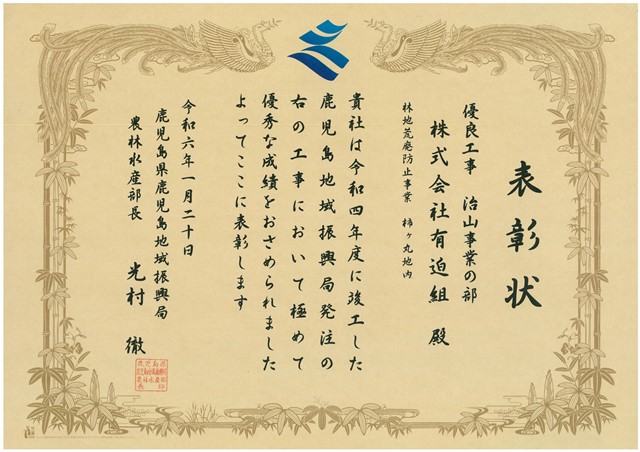 表彰状
優良工事　治山事業の部
株式会社有迫組　殿
林地荒廃防止事業　柿ヶ丸地内
貴社は令和四年度に竣工した
鹿児島地域振興局発注の
右の工事において極めて
優秀な成績をおさめられました
よってここに表彰します
令和六年一月二十日
鹿児島県鹿児島地域振興局
農林水産部長　光村　徹